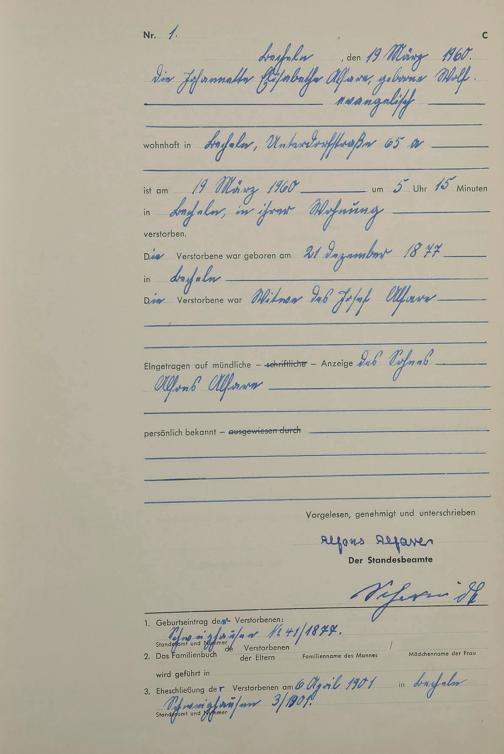 Nr. 1. C
Becheln, den 19 März 1960.
Die Johannette Elisabethe Alfare, geborne Wolf.
evangelisch
wohnhaft in Becheln, Unterdorfstraße 65 a
ist am 19 März 1960 um 5 Uhr 15 Minuten
in Becheln, in ihrer Wohnung
verstorben.
Die Verstorbene war geboren am 21 Dezember 1877
in Becheln
Die Verstorbene war Witwe des Josef Alfare
Eingetragen auf mündliche – schriftliche – Anzeige des Sohnes
Alfons Alfare
persönlich bekannt – ausgewiesen durch
Vorgelesen, genehmigt und unterschrieben
Alfons Alfare
Der Standesbeamte
1. Geburtseintrag der Verstorbenen:
Schweighausen Nr 41/1877.
Standesamt und Nummer
2. Das Familienbuch de Verstorbenen / der Eltern Familienname des Mannes Mädchenname der Frau
wird geführt in
3. Eheschließung der Verstorbenen am 6 April 1901 in Becheln
Schweighausen 3/1901.
Standesamt und Nummer